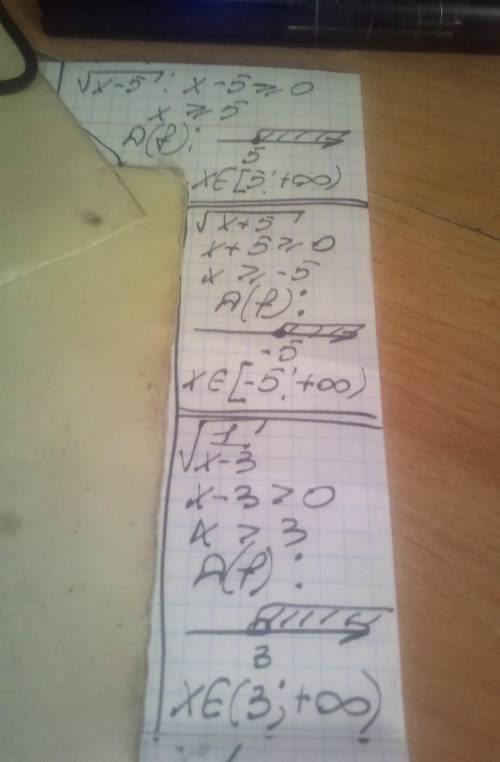 √x-5: x-5≥0
x≥5
D(f):
5
x∈[5;+∞)
√x+5
x+5≥0
x≥-5
D(f):
-5
x∈[-5;+∞)
√1/x-3
x-3>0
x>3
D(f):
3
x∈(3;+∞)